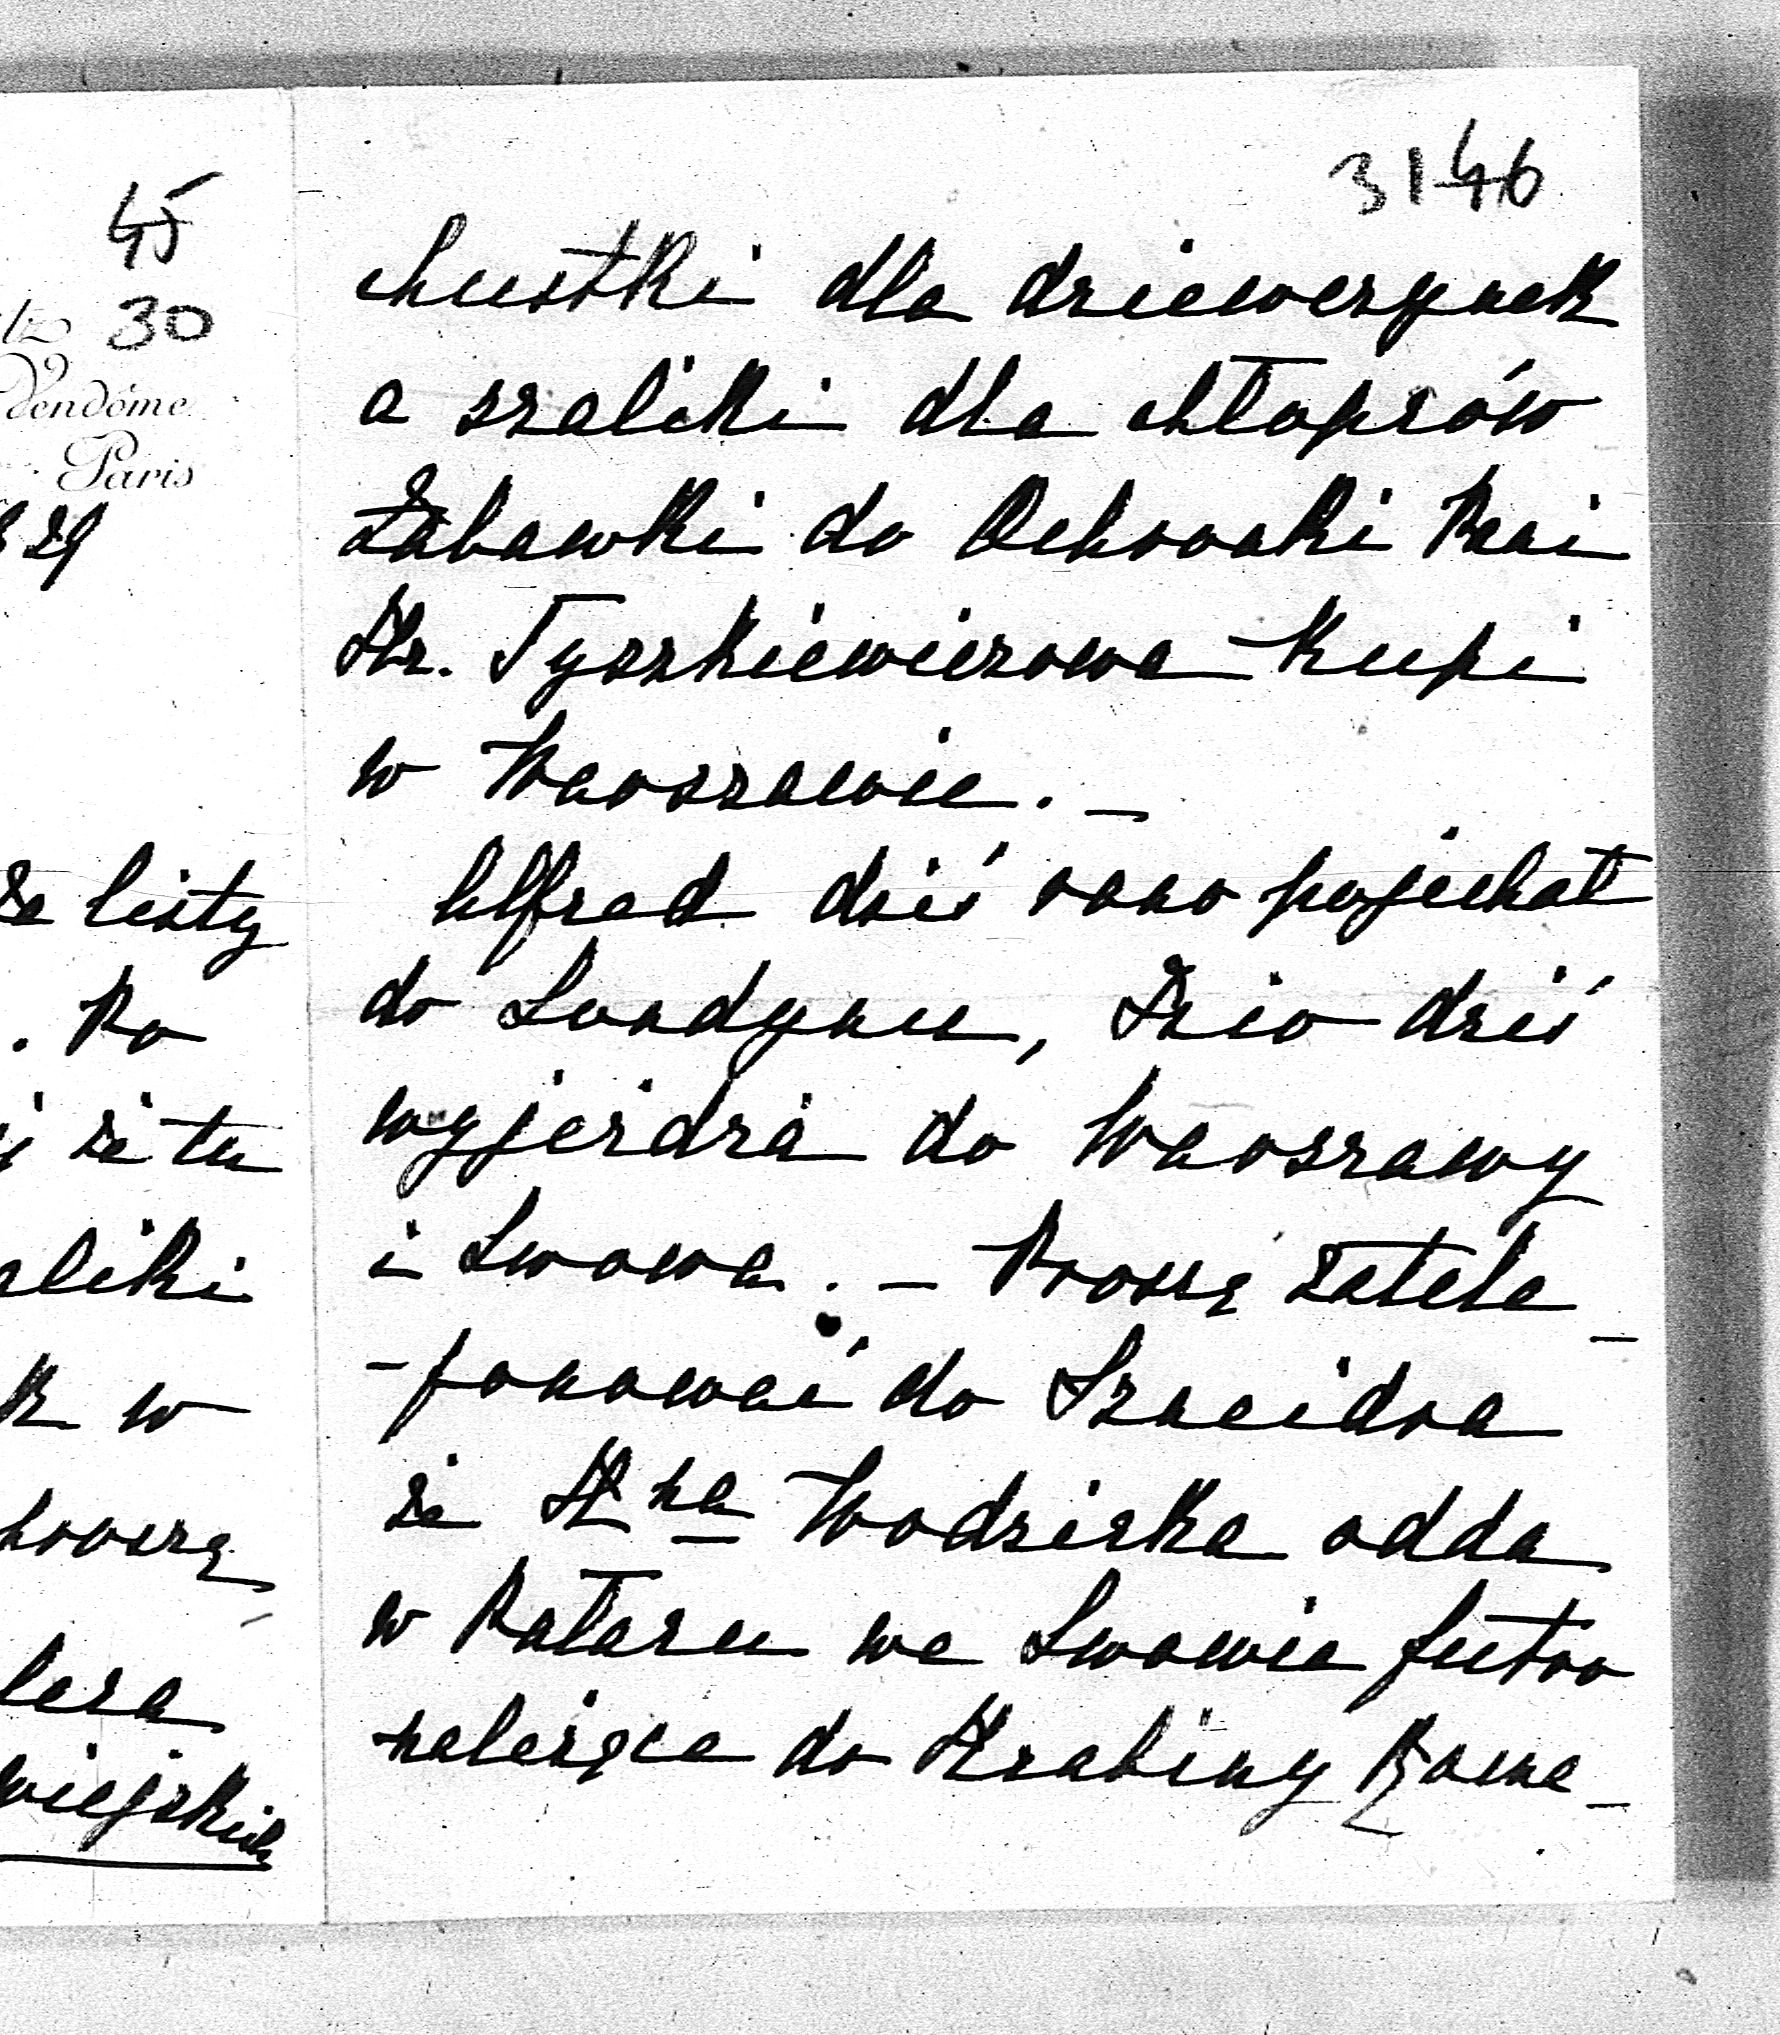 45
30
tz
Vendôme
Paris
29
że listy
. Po
że tu
aliki
k w
lera
wiejskich
31 46
chustki dla dziewczynek
a szaliki dla chłopców
Zabawki do Ochronki Pani
Hr. Tyszkiewiczowa kupi
w Warszawie. –
Alfred dziś rano pojechał
do Londynu, Józio dziś
wyjeżdża do Warszawy
i Lwowa. – Proszę zatele-
-fonować do Szneidra
że Hna Wodzicka odda
w Pałacu we Lwowie futro
należące do Hrabiny